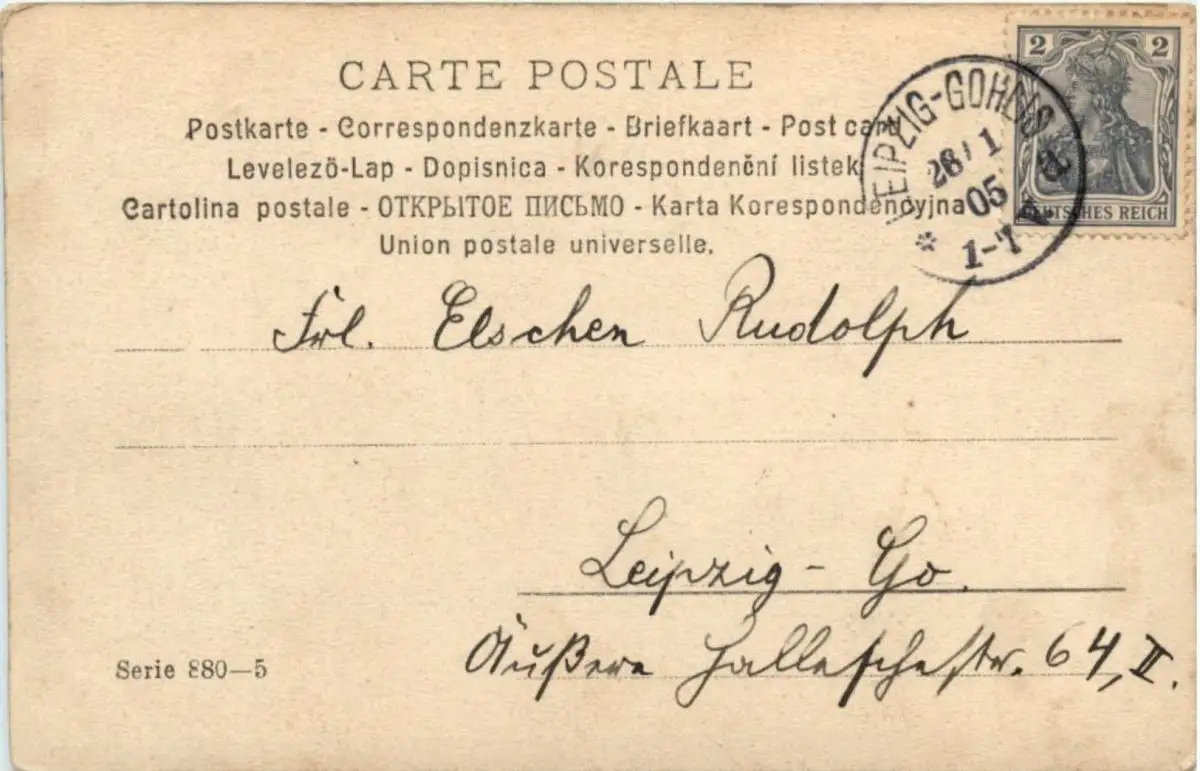 CARTE POSTALE
Postkarte - Correspondenzkarte - Briefkaart - Post card
Levelezö-Lap - Dopisnica - Korespondenční listek
Cartolina postale - ОТКРЫТОЕ ПИСЬМО - Karta Korespondencyjna
Union postale universelle.
2 2
DEUTSCHES REICH
LEIPZIG-GOHLIS
28/1
05
1-7 V
* a
Frl. Elschen Rudolph
Leipzig - Go.
Äußere Halleschestr. 64, II.
Serie 880—5